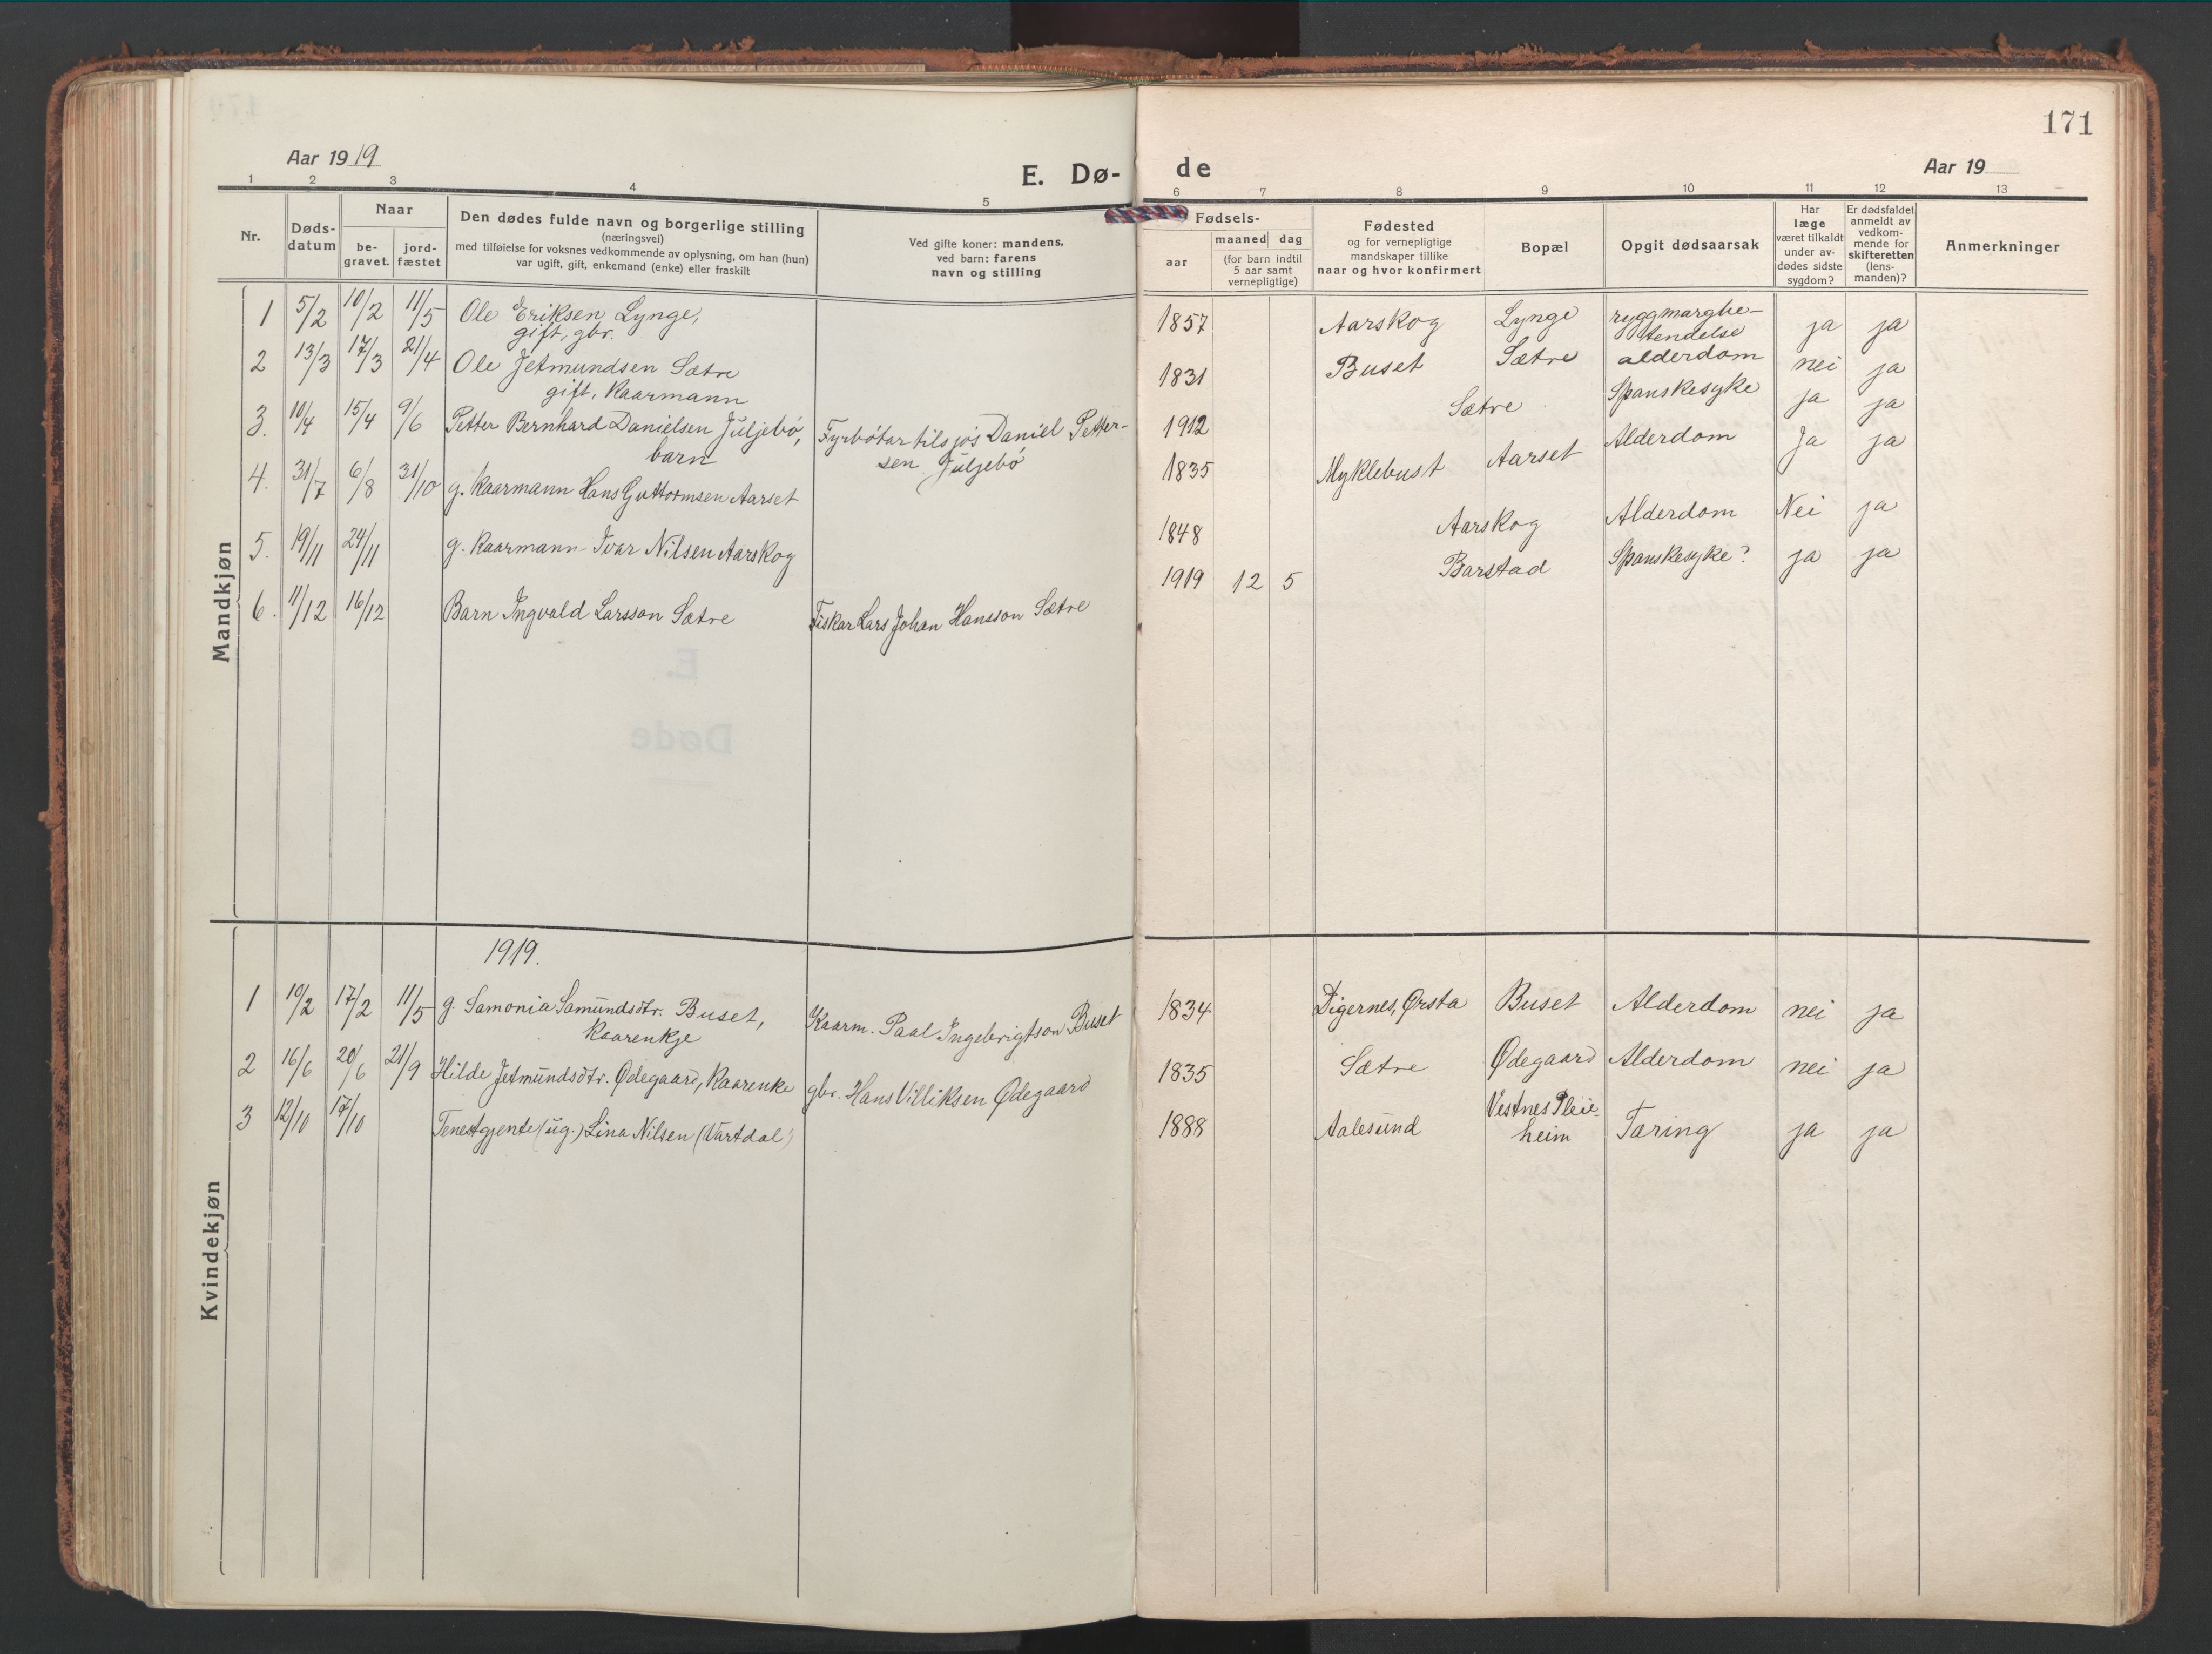 171
Aar 1919
E. Dø-
de
Aar 19
1 2 3 4 5 6 7 8 9 10 11 12 13
Nr.
Døds-
datum
Naar
be-
gravet.
jord-
fæstet
Den dødes fulde navn og borgerlige stilling
(næringsvei)
med tilføielse for voksnes vedkommende av oplysning, om han (hun)
var ugift, gift, enkemand (enke) eller fraskilt
Ved gifte koner: mandens,
ved barn: farens
navn og stilling
Fødsels-
aar
maaned dag
(for barn indtil
5 aar samt
vernepligtige)
Fødested
og for vernepligtige
mandskaper tillike
naar og hvor konfirmert
Bopæl
Opgit dødsaarsak
Har
læge
været tilkaldt
under av-
dødes sidste
sygdom?
Er dødsfaldet
anmeldt av
vedkom-
mende for
skifteretten
(lens-
manden)?
Anmerkninger
Mandkjøn
1 5/2 10/2 11/5 Ole Eriksen Lynge, 1857 Aarskog Lynge ryggmargbe-
gift, gbr. tendelse ja ja
2 13/3 17/3 21/4 Ole Jetmundsen Sætre 1831 Buset Sætre alderdom nei ja
gift, kaarmann
3. 10/4 15/4 9/6 Petter Bernhard Danielsen Juljebö, Fyrbötar tilsjös Daniel Petter- 1912 Sætre Spanskesyke ja ja
barn sen Juljebö
4. 31/7 6/8 31/10 g. kaarmann Hans Guttormsen Aarset 1835 Myklebust Aarset Alderdom Ja ja
5. 19/11 24/11 g. kaarmann Ivar Nilsen Aarskog 1848 Aarskog Alderdom Nei ja
6. 11/12 16/12 Barn Ingvald Larsson Sætre Fiskar Lars Johan Hansson Sætre 1919 12 5 Barstad Spanskesyke? ja ja
Kvindekjøn
1919.
1 10/2 17/2 11/5 g. Samonia Samundsdtr. Buset, Kaarm. Paal Ingebrigtson Buset 1834 Digernes, Ørsta Buset Alderdom nei ja
kaarenkje
2 16/6 20/6 21/9 Hilde Jetmundsdtr. Ødegaard, kaarenke gbr. Hans Villiksen Ødegaard 1835 Sætre Ødegaard Alderdom nei ja
3 12/10 17/10 Tenestgjente (ug.) Lina Nilsen (Vartdal) 1888 Aalesund Vestnes Pleie
heim Tæring ja ja